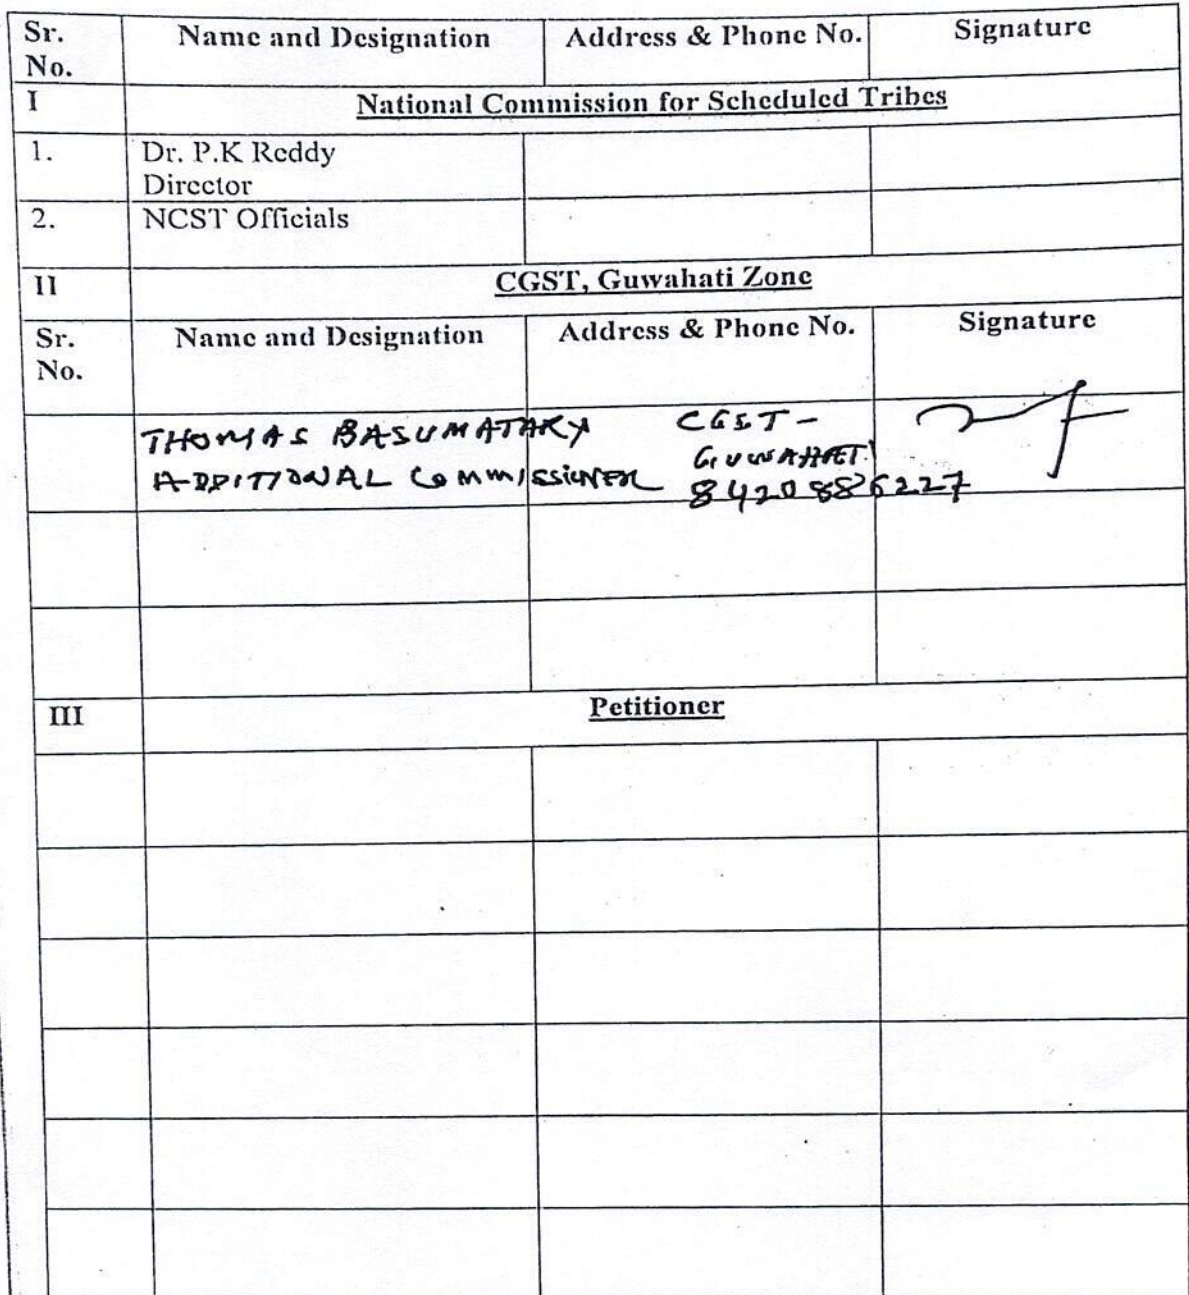 Sr. No. Name and Designation Address & Phone No. Signature
I National Commission for Scheduled Tribes
1. Dr. P.K Reddy
Director
2. NCST Officials
II CGST, Guwahati Zone
Sr. No. Name and Designation Address & Phone No. Signature
THOMAS BASUMATARY CGST -
ADDITIONAL COMMISSIONER GUWAHATI
8420886227
III Petitioner